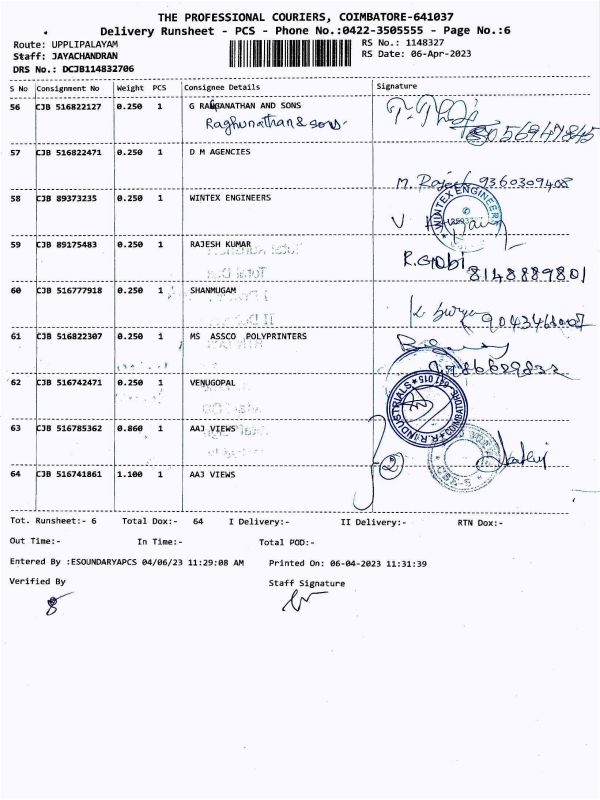 THE PROFESSIONAL COURIERS, COIMBATORE-641037
Delivery Runsheet - PCS - Phone No.:0422-3505555 - Page No.:6
Route: UPPLIPALAYAM
RS No.: 1148327
Staff: JAYACHANDRAN
RS Date: 06-Apr-2023
DRS No.: DCJB114832706
S No Consignment No Weight PCS Consignee Details Signature
56 CJB 516822127 0.250 1 G RANGANATHAN AND SONS
Raghunathan & sons.
57 CJB 516822471 0.250 1 D M AGENCIES
M. Rajesh 9360309408
58 CJB 89373235 0.250 1 WINTEX ENGINEERS
WINTEX ENGINEER
59 CJB 89175483 0.250 1 RAJESH KUMAR
R. Gobi
8148889801
60 CJB 516777918 0.250 1 SHANMUGAM
61 CJB 516822307 0.250 1 MS ASSCO POLYPRINTERS
62 CJB 516742471 0.250 1 VENUGOPAL
R.R. INDUSTRIALS COIMBATORE-641 015
63 CJB 516785362 0.860 1 AAJ VIEWS
2
CBE-5
64 CJB 516741861 1.100 1 AAJ VIEWS
Tot. Runsheet:- 6 Total Dox:- 64 I Delivery:- II Delivery:- RTN Dox:-
Out Time:- In Time:- Total POD:-
Entered By :ESOUNDARYAPCS 04/06/23 11:29:08 AM Printed On: 06-04-2023 11:31:39
Verified By Staff Signature